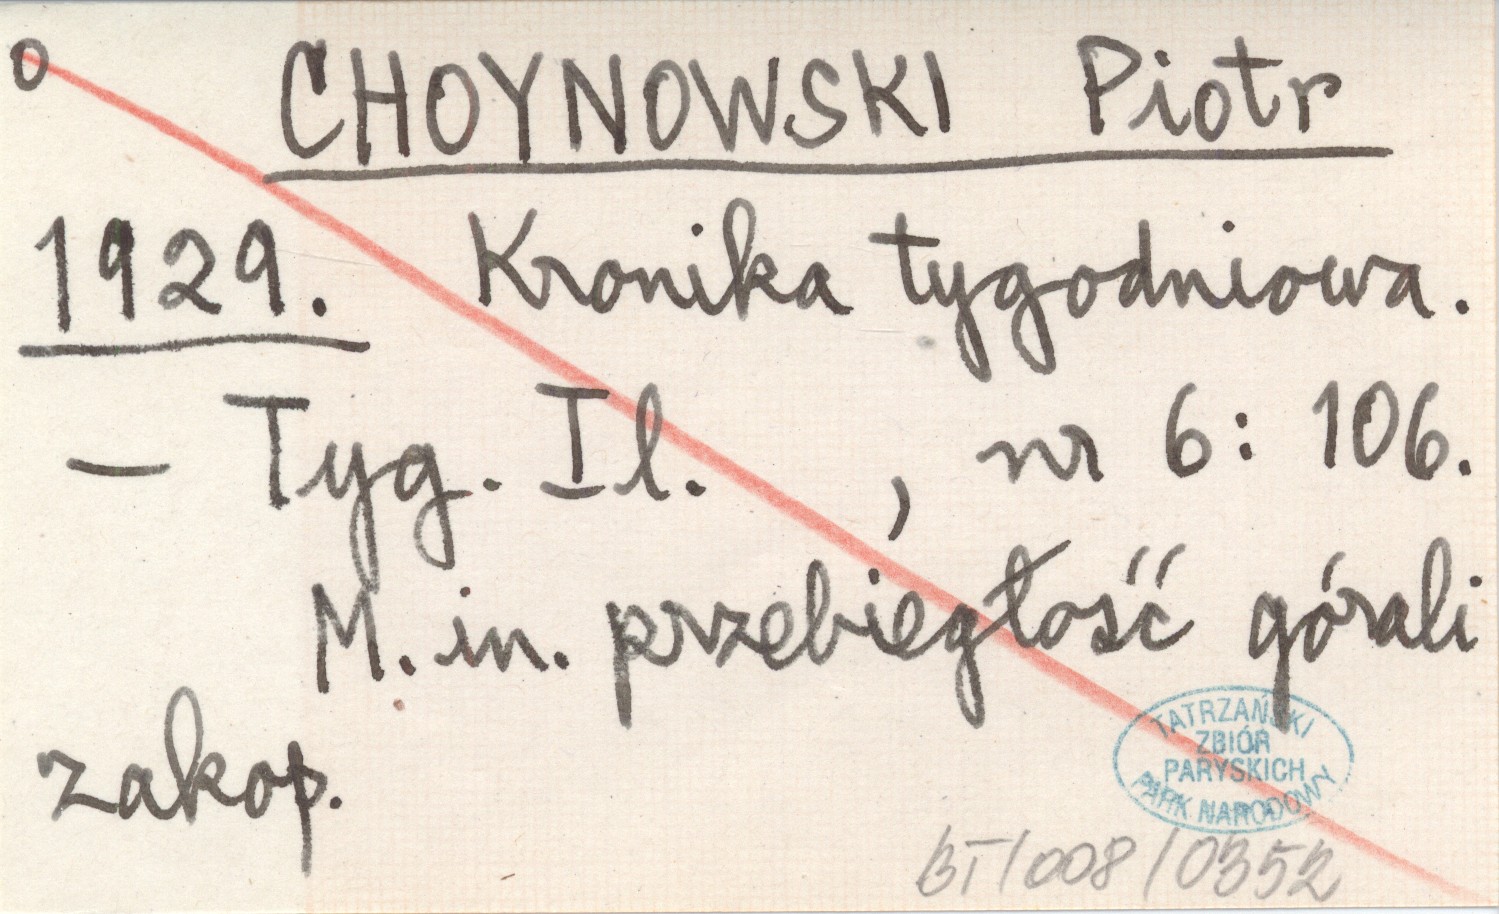 o CHOYNOWSKI Piotr
1929. Kronika tygodniowa.
— Tyg. Il. , nr 6: 106.
M. in. przebiegłość górali
zakop.
TATRZAŃSKI
ZBIÓR
PARYSKICH
PARK NARODOWY
BT/008/0352